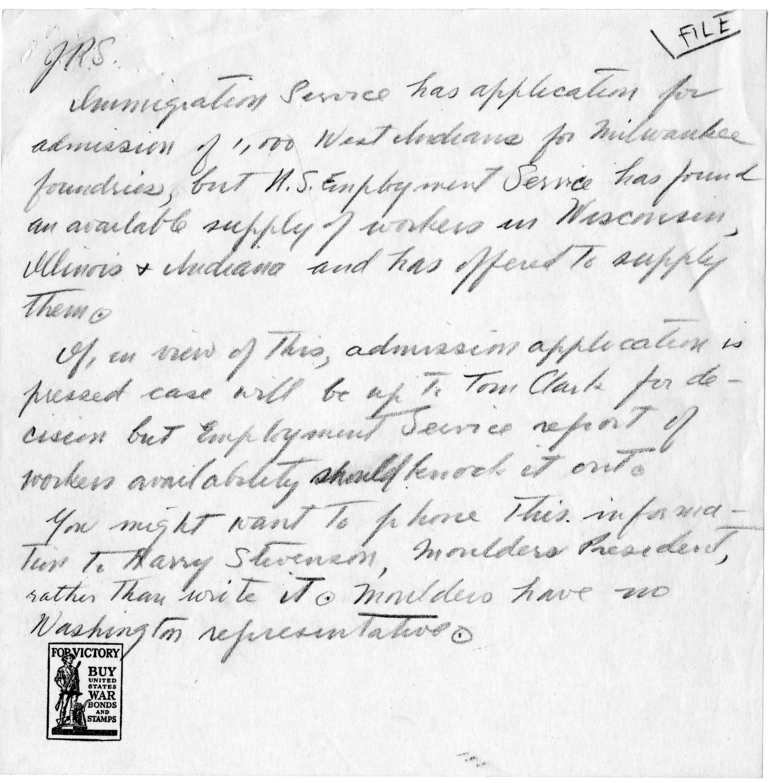 FILE
J.R.S.
Immigration Service has application for
admission of 1,000 West Indians for Milwaukee
foundries, but U.S. Employment Service has found
an available supply of workers in Wisconsin,
Illinois + Indiana and has offered to supply
them.
If, in view of this, admission application is
pressed case will be up to Tom Clark for de-
cision but Employment Service report of
workers availability should knock it out.
You might want to phone this informa-
tion to Harry Stevenson, Moulders President,
rather than write it. Moulders have no
Washington representative.
FOR VICTORY
BUY
UNITED
STATES
WAR
BONDS
AND
STAMPS